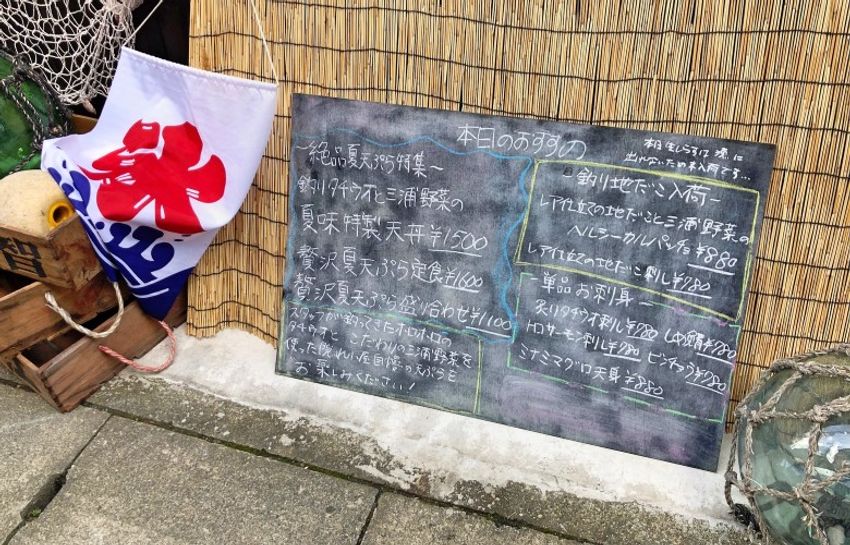 本日のおすすめ
本日生しらすは漁に
出れないため未入荷です…
〜絶品夏天ぷら特集〜
釣りタチウオと三浦野菜の
夏味特製天丼¥1500
贅沢夏天ぷら定食¥1600
贅沢夏天ぷら盛り合わせ¥1100
スタッフが釣ってきた
タチウオと こだわりの三浦野菜を
使った 自慢の天ぷらを
お楽しみください!
釣り地だこ入荷ー
レア仕立ての地だこと三浦野菜の
ヘルシーカルパッチョ¥880
レア仕立ての地だこ刺し¥780
ー単品お刺身ー
炙りタチウオ刺し¥780 しめ鯖¥780
トロサーモン刺し¥780 ビンチョウ¥780
ミナミマグロ天身¥880
智